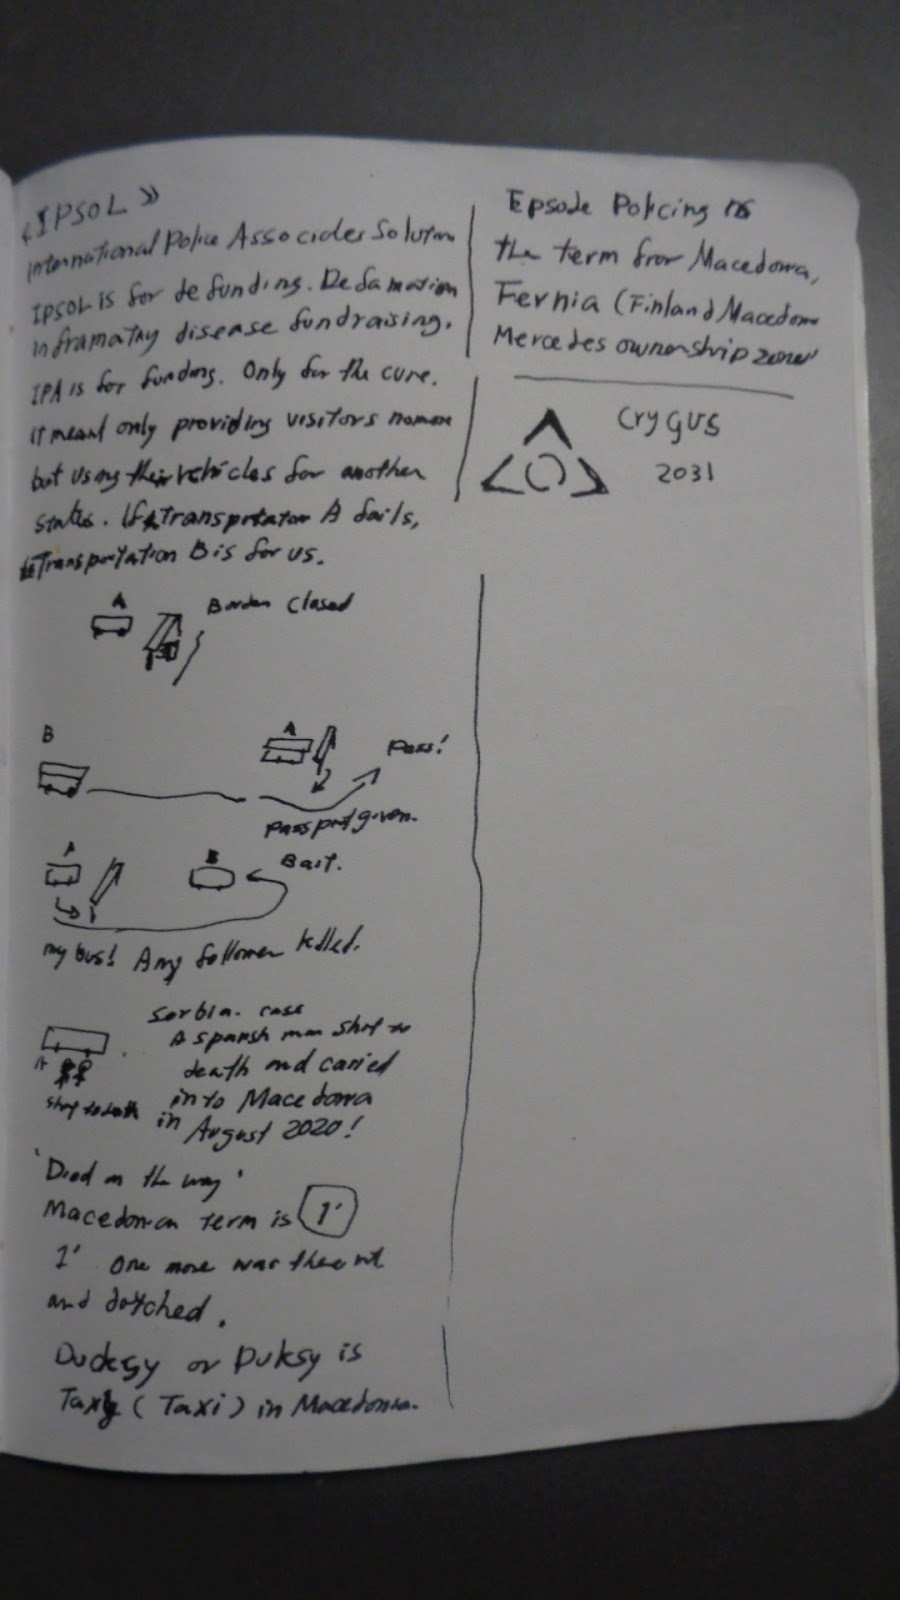 «IPSOL»
International Police Associates Solution
IPSOL is for defunding. Defamation
Inframatny disease fundraising.
IPA is for funding. Only for the cure.
it meant only providing visitors
but using their vehicles for another
states. If Transportator A fails,
Transportation B is for us.
A
Border Closed
B
A
Pass!
passport given.
A
B
Bait.
my bus! Any follower killed.
Serbia. case
A spanish man shot to
death and carried
into Macedonia
in August 2020!
A
shot to death
'Died on the way'
Macedonian term is 1'
1' One more was there
and dotched.
Dudegy or Duksy is
Taxy (Taxi) in Macedonia.
Epsode Policing is
the term from Macedonia,
Fernia (Finland Macedonia
Mercedes ownership zone
Crygus
2031